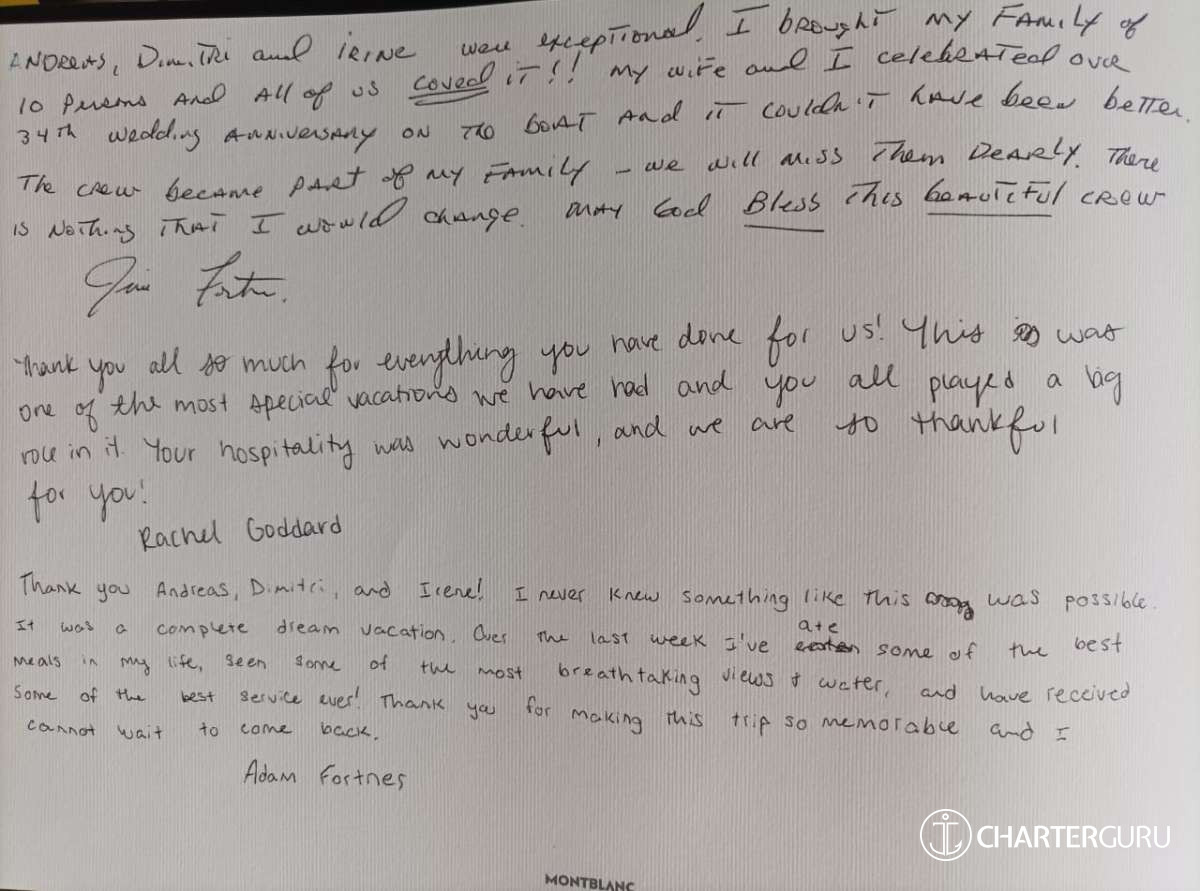 ANDREAS, Dimitri and IRINE were exceptional. I brought my Family of
10 persons and all of us loved it!! My wife and I celebrated over
34th wedding anniversary on the boat and it couldn't have been better.
The crew became part of my Family - we will miss them dearly. There
is nothing that I would change. May God Bless this beautiful crew
Thank you all so much for everything you have done for us! This is was
one of the most special vacations we have had and you all played a big
role in it. Your hospitality was wonderful, and we are so thankful
for you!
Rachel Goddard
Thank you Andreas, Dimitri, and Irene! I never knew something like this was possible.
It was a complete dream vacation. Over the last week I've ate some of the best
meals in my life, seen some of the most breathtaking views & water, and have received
some of the best service ever! Thank you for making this trip so memorable and I
cannot wait to come back.
Adam Fortnes
CHARTERGURU
MONTBLANC